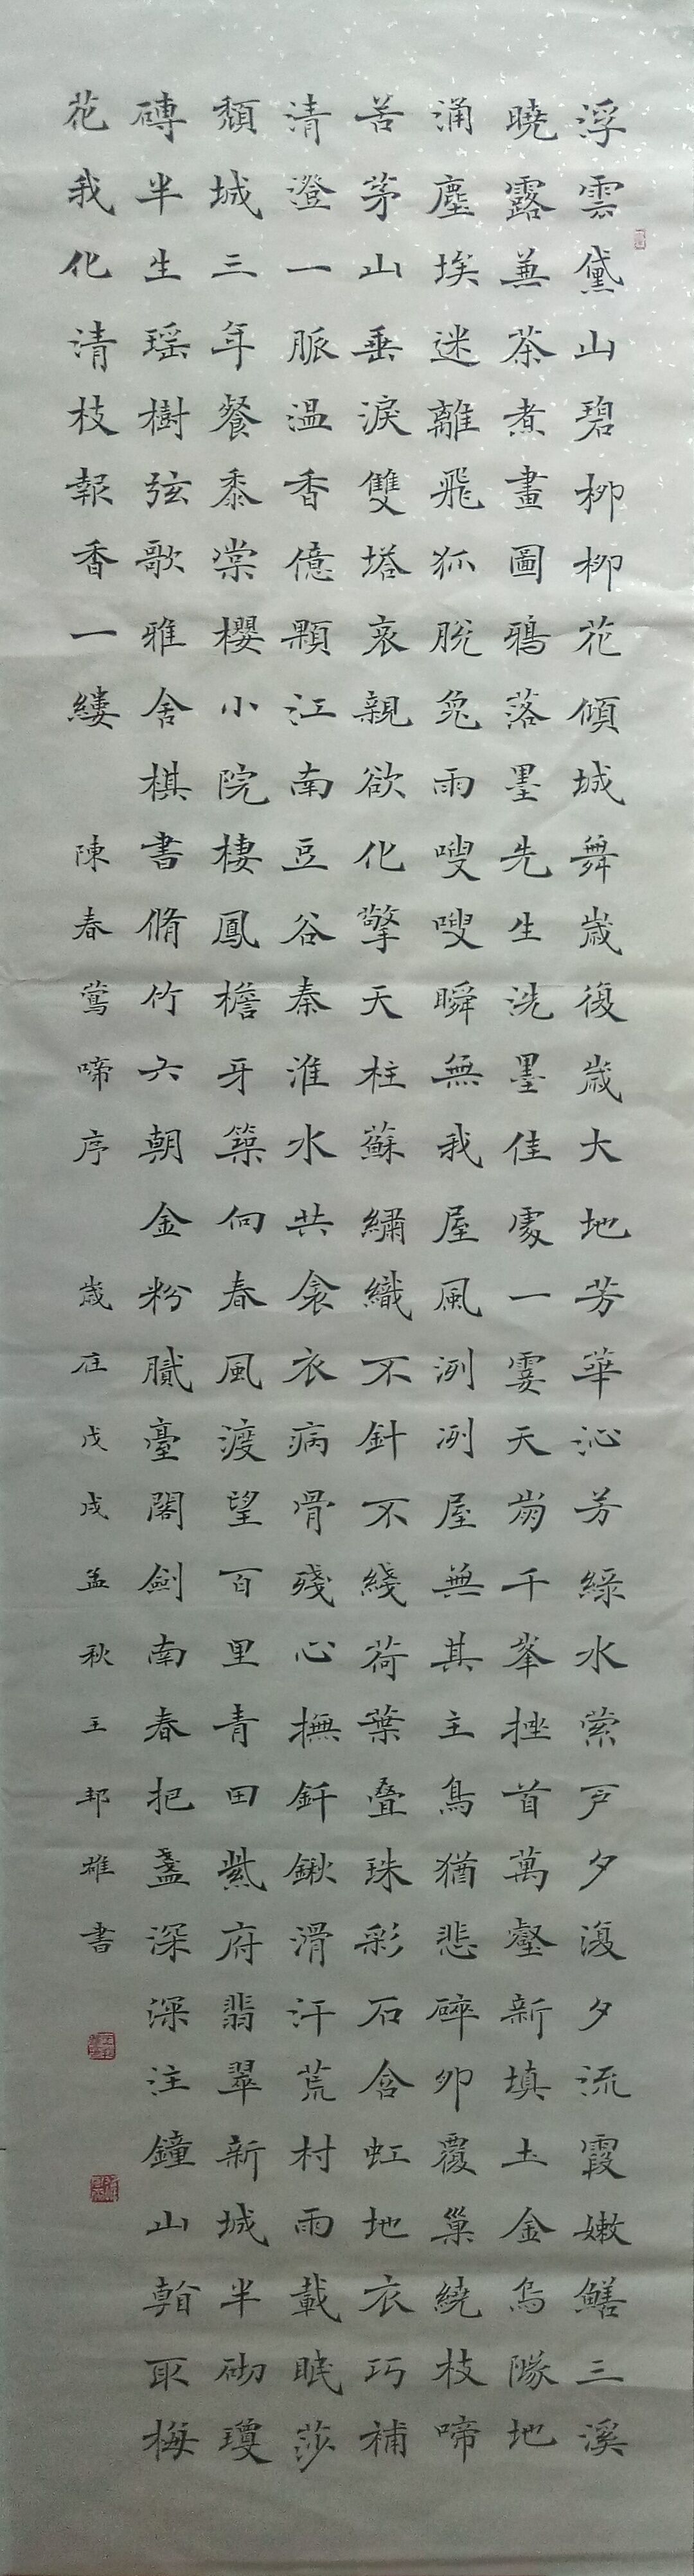 浮雲黛山碧柳柳花傾城舞歲復歲大地芳華沁芳綠水縈戶夕復夕流霞嫩鱔三溪
曉露兼茶煮畫圖鴉落墨先生洗墨佳處一霎天崩千峯挫首萬壑新填土金烏墜地
涌塵埃迷離飛狐脫兔雨嗖嗖瞬無我屋風冽冽屋無其主鳥猶悲碎卵覆巢繞枝啼
苦茅山垂淚雙塔哀親欲化擎天柱蘇繡織不針不綫荷葉疊珠彩石含虹地衣巧補
清澄一脈溫香億顆江南豆谷秦淮水共衾衣病骨殘心撫釺鍬滑汗荒村雨載眠莎
頹城三年餐黍棠櫻小院棲鳳檐牙築向春風渡望百里青田紫府翡翠新城半砌瓊
磚半生瑶樹弦歌雅舍棋書脩竹六朝金粉膩臺閣劍南春把盞深深注鐘山翰取梅
花我化清枝報香一縷
陳春鶯啼序
歲在戊戌孟秋王邦雄書